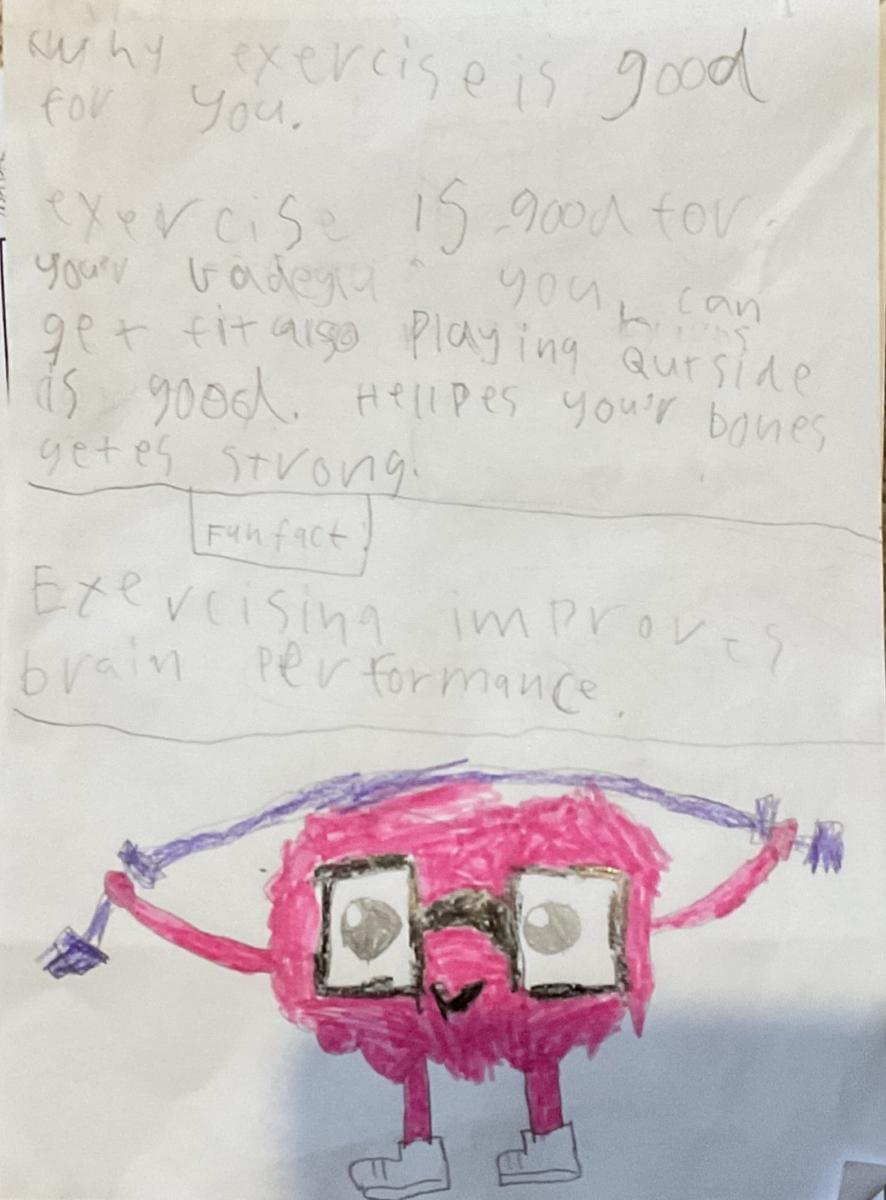 Why exercise is good
for you.
exercise is good for
your you can
get fit also Playing Qutside
is good. Hellpes you'r bones
getes strong.
Funfact!
Exercising improves
brain performance.